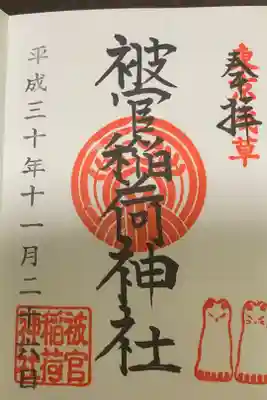 東京浅草
奉拝
被官稲荷神社
平成三十年十一月二十 日
被官
稲荷
神社